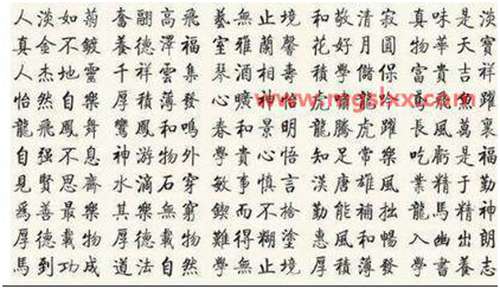 人淡如菊 奮翮高飛 藝無止境 和敬清寂 真味是淡
真金不鍍 養德澤福 室雅蘭馨 花好月圓 物華天寶
人杰地靈 千祥雲集 琴酒相壽 積學儲保 富貴吉祥
怡然自樂 厚積薄發 心曠神怡 虎 龍 飛躍
龍飛鳳舞 鸞鳳和鳴 春和景明 龍騰虎躍 長風萬裏
自强不息 神游物外 學貴心悟 知足常樂 吃虧是福
見賢思齋 水滴石穿 敏事慎言 漢唐雄風 業精于勤
爲善最樂 其樂無窮 鍥而不捨 勤能補拙 龍馬精神
厚德載物 厚德載物 難得糊塗 惠風和暢 入幽出朗
馬到功成 道法自然 學無止境 厚積薄發 學書養志
www.mgslxx.com